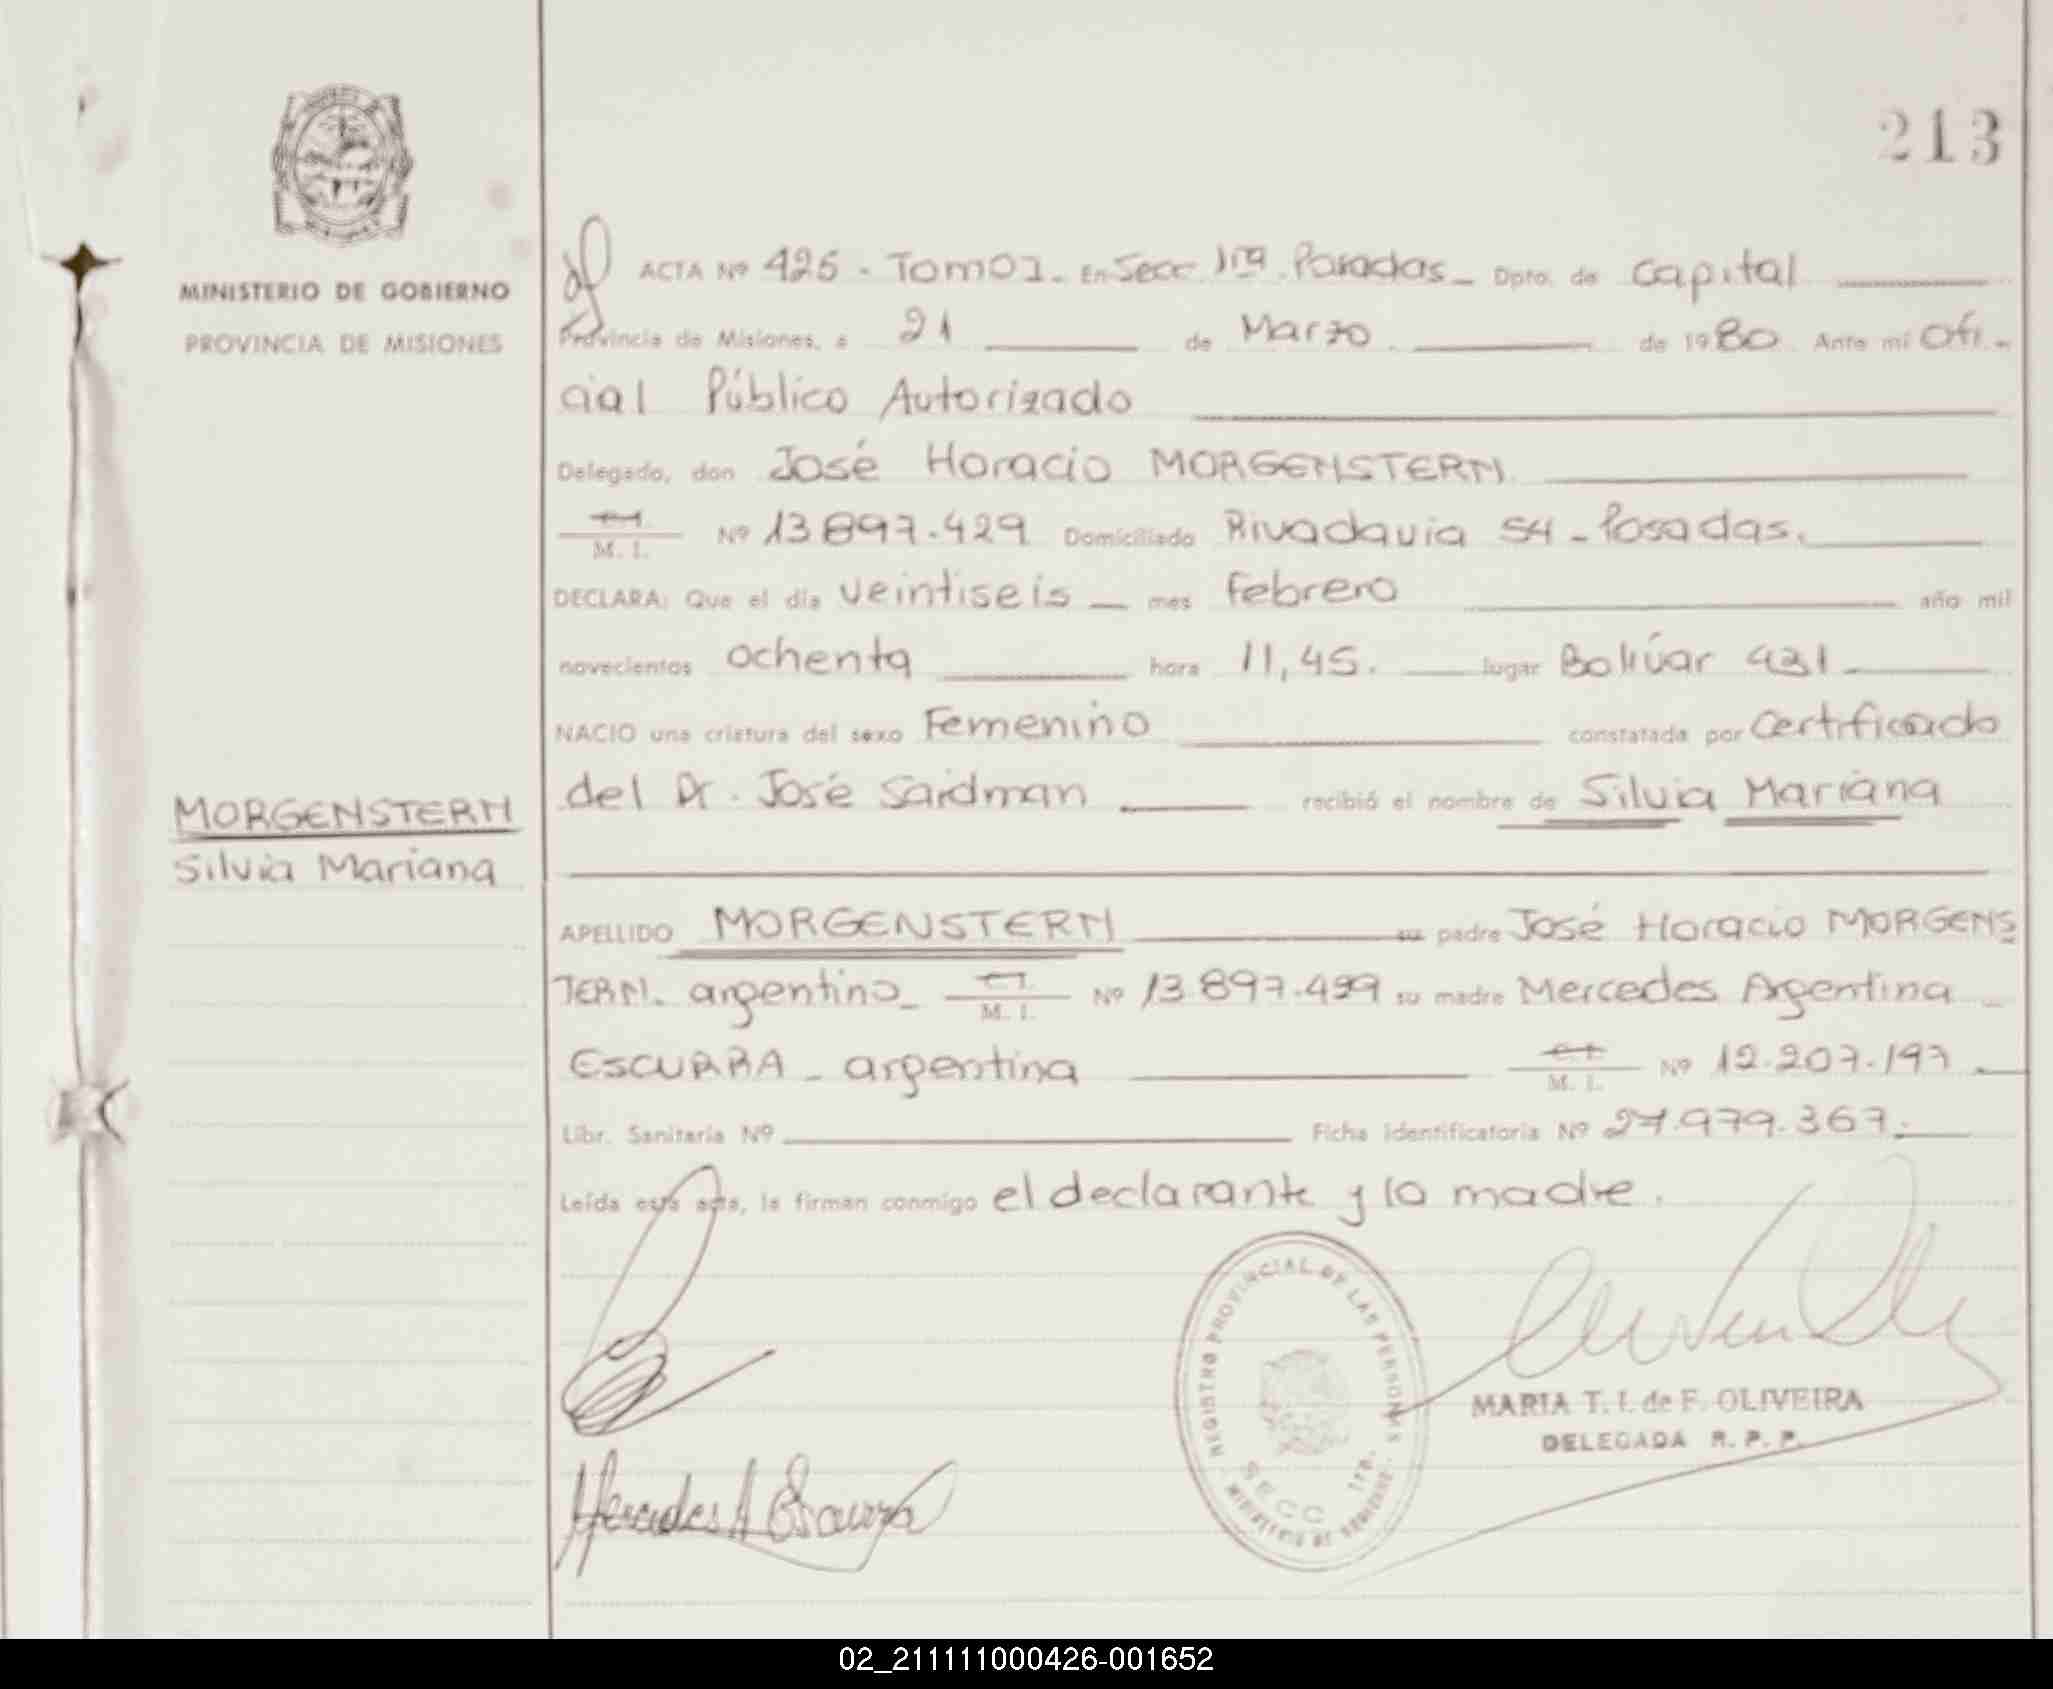 213
MINISTERIO DE GOBIERNO
PROVINCIA DE MISIONES
ACTA Nº 425 - Tomo 1 - En Secc 1ra. Posadas - Dpto. de Capital
Provincia de Misiones, a 21 de Marzo de 1980 Ante mi Ofi-
cial Público Autorizado
Delegado, don José Horacio MORGENSTERN
M. I. Nº 13897.429 Domiciliado Rivadavia 54 - Posadas.
DECLARA: Que el día veintiseis - mes Febrero año mil
novecientos ochenta hora 11,45. lugar Bolívar 431
NACIO una criatura del sexo Femenino constatada por Certificado
del Dr. José Saidman recibió el nombre de Silvia Mariana
MORGENSTERN
Silvia Mariana
APELLIDO MORGENSTERN su padre José Horacio MORGENS
TERN. argentino - M. I. Nº 13.897.499 su madre Mercedes Argentina
ESCURRA - argentina M. I. Nº 12.207.197
Libr. Sanitaria Nº Ficha identificatoria Nº 27.979.367.-
Leída esta acta, la firman conmigo el declarante y la madre.
REGISTRO PROVINCIAL DE LAS PERSONAS
SECC 1ra.
MINISTERIO DE GOBIERNO
MARIA T. I. de F. OLIVEIRA
DELEGADA R. P. P.
Mercedes A Escurra
02_211111000426-001652